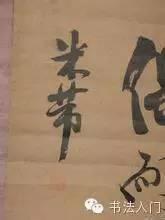 而
米芾
书法入门